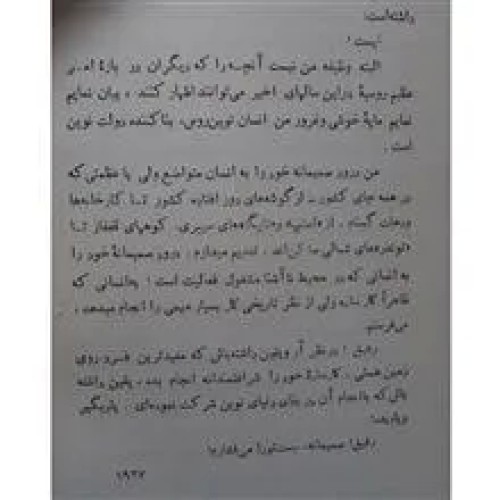 داشته‌است.
نیست !
البته وظیفه من نیست آنچه را که دیگران در بارهٔ
عظیم روسیهٔ دراین سالهای اخیر می‌توانند اظهار کنند ، بیان نمایم
نمایم مایهٔ خوشی وغرور من انسان نوین‌روس، بنا کننده دولت نوین
است .
من درود صمیمانه خود را به انسان متواضع ولی با عظمتی که
در همه جای کشور ـ از گوشه‌های دور افتاده کشور تـا کارخانه‌ها
ودهات کوههای قفقاز تـا
شمالی تقدیم میدارم . درود صمیمانهٔ خود را
به انسانی که در محیط ناآشنا مشغول فعالیت است ؛ به‌انسانی که
ظاهراً کار ساده ولی از نظر تاریخی کار بسیار مهمی را انجام میدهد ،
می‌فرستم.
رفیق ! در نظر آر ویقین داشته‌باش که مفیدترین فـرد روی
زمین هستی . کار سادهٔ خود را شرافتمندانه انجام بده ، یقین داشته
باش که باانجام آن در بنای دنیای نوین شرکت نموده‌ای .

رفیق! صمیمانه، دستتورا می‌فشارم!
۱۹۲۷